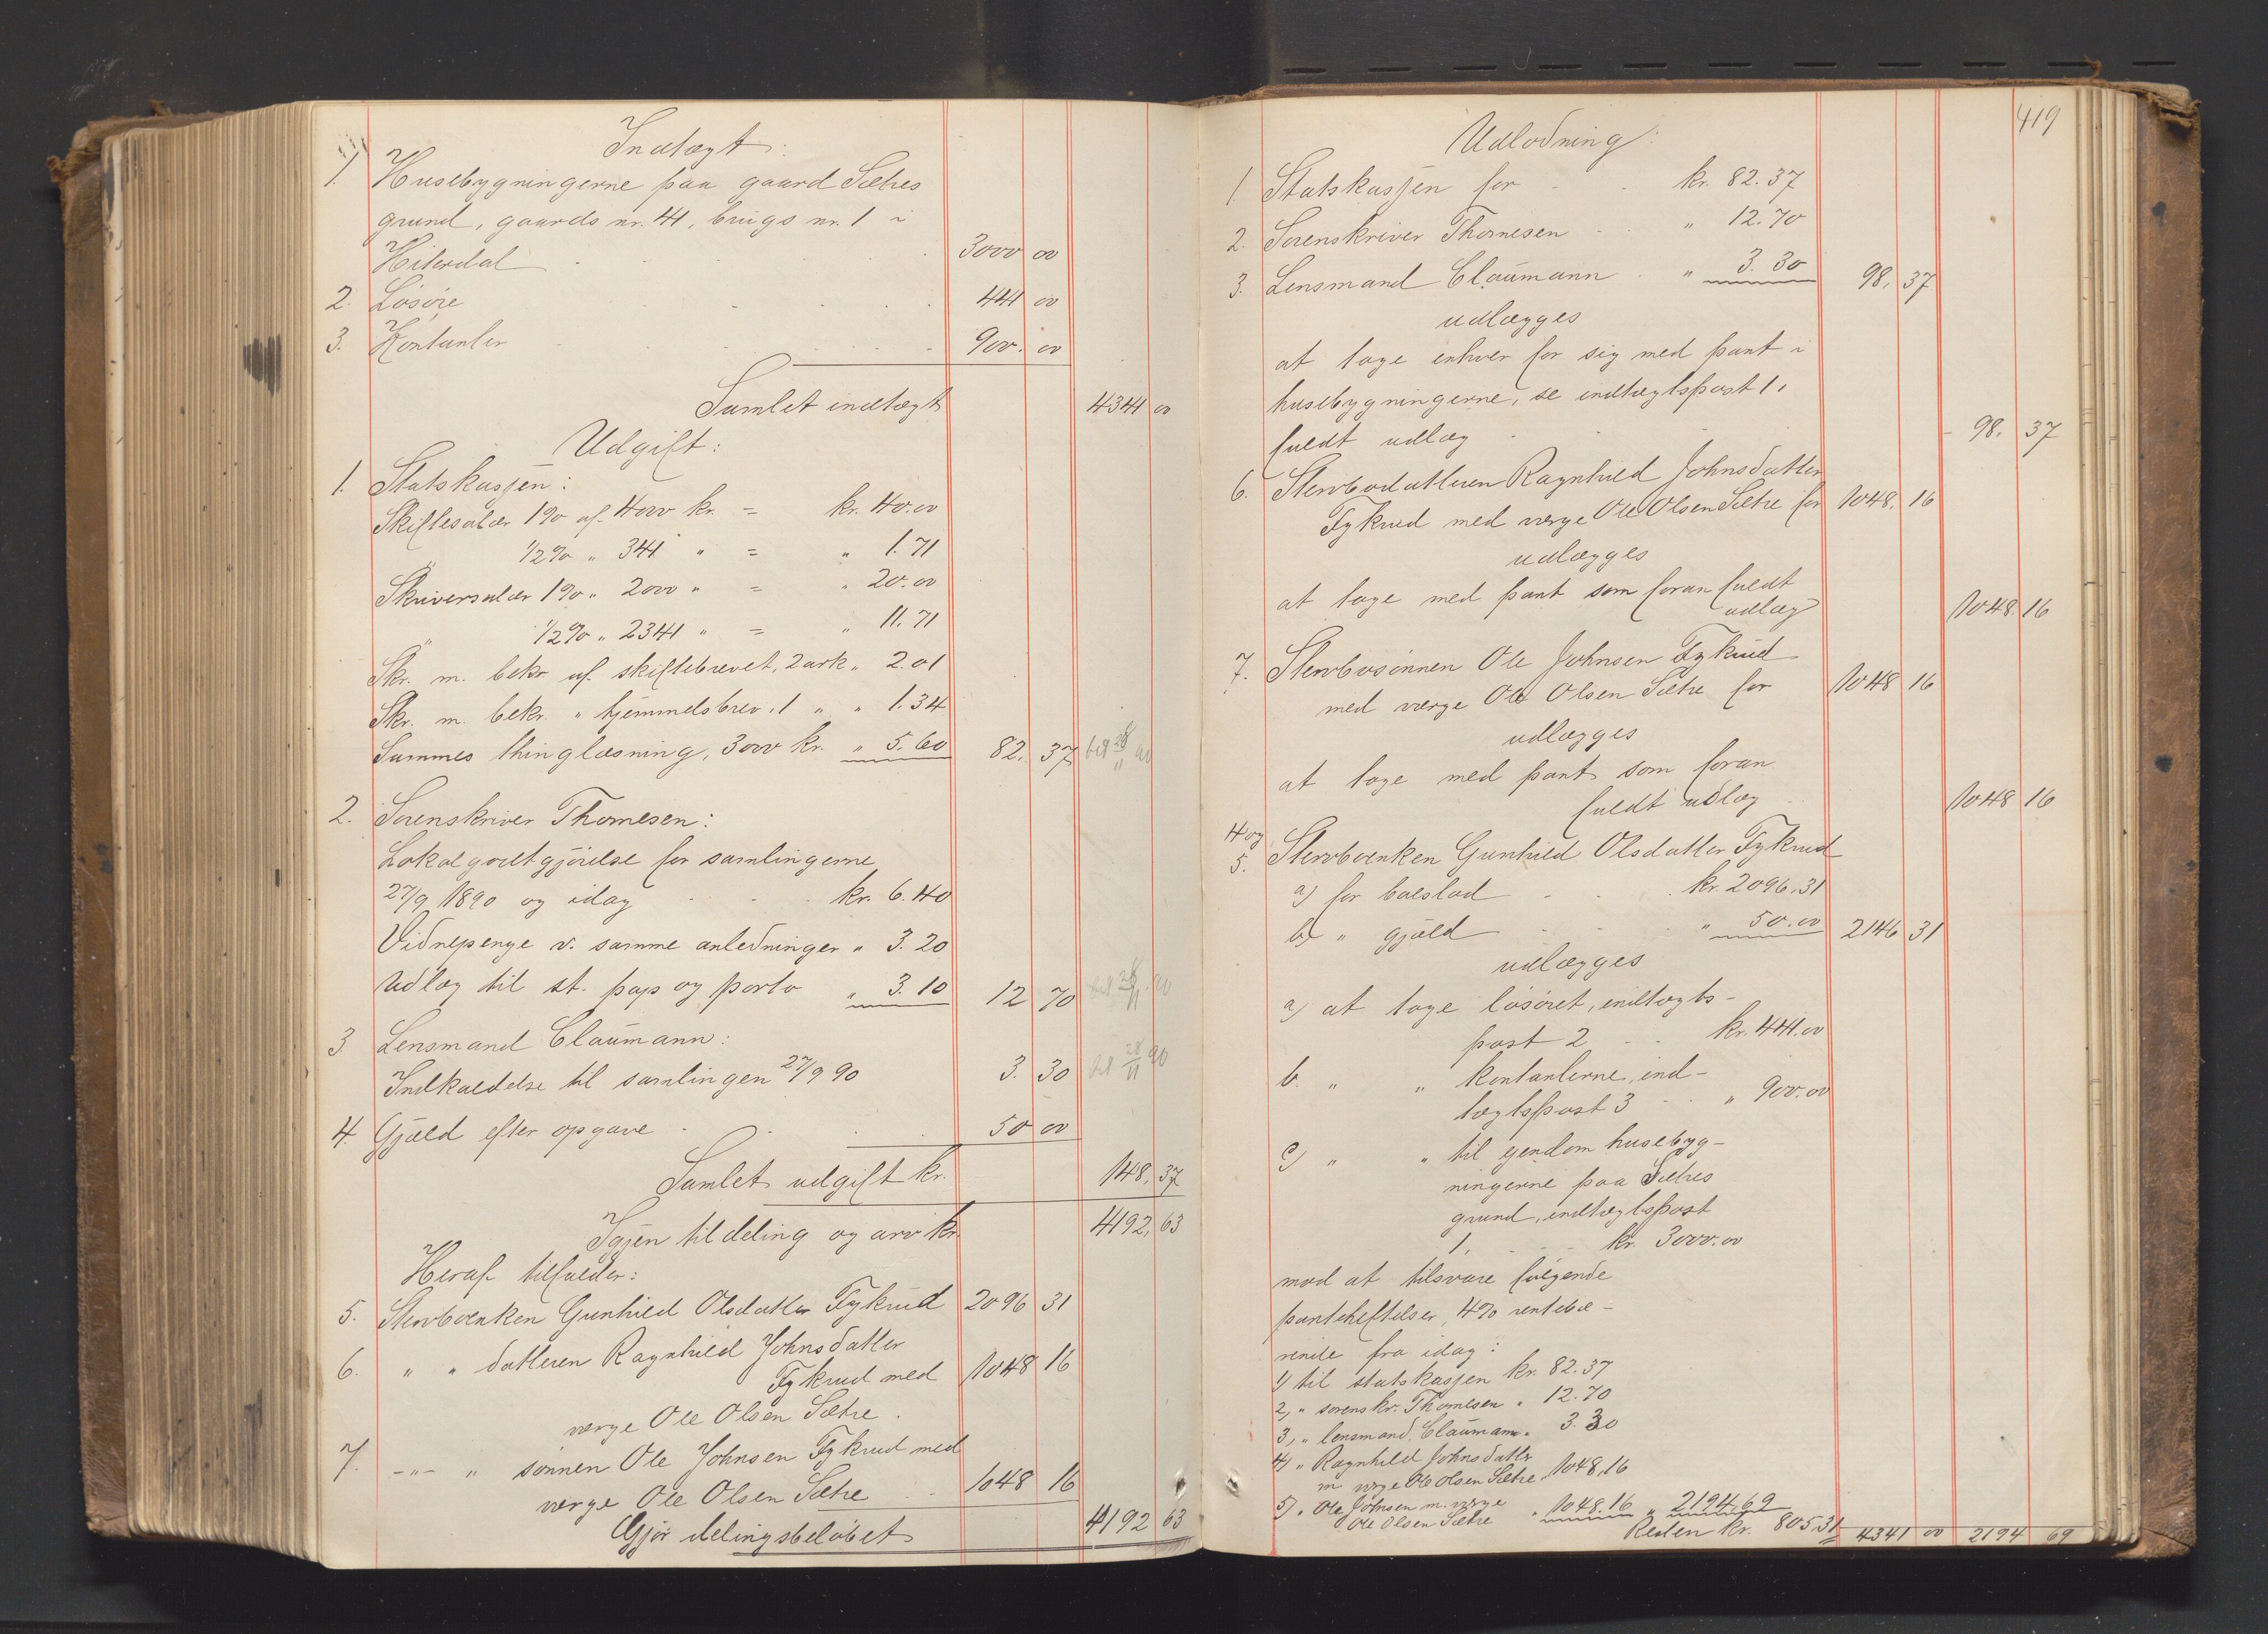 Indtægt:
1. Husebygningerne paa gaard Sætres
grund, gaards nr. 41, brugs nr. 1 i
Hiterdal 3000 00
2. Løsøre 441 00
3. Kontanter 900. 00
Samlet indtægt 4341 00
Udgift:
1. Statskassen:
Skiftesalær 1% af 4000 kr. = kr. 40.00
" 1/2% " 341 " = " 1.71
Skriversalær 1% " 2000 " = " 20.00
" 1/2% " 2341 " = " 11.71
Skr. m. bekr. af skiftebrevet, 2 ark " 2.01
Skr. m. bekr. " hjemmelsbrev, 1 " " 1.34
Sammes thinglæsning, 3000 kr. " 5.60 82. 37 bet 28/11 90
2. Sorenskriver Thomesen:
Lokalgodtgjørelse for samlingerne
27/9 1890 og idag kr. 6.40
Vidnepenge v. samme anledninger " 3.20
Udlæg til st. pap og porto " 3.10 12 70 bet 28/11 90
3 Lensmand Claumann:
Indkaldelse til samlingen 27/9 90 3. 30 bet 28/11 90
4. Gjæld efter opgave 50 00
Samlet udgift kr. 148, 37
Igjen til deling og arv kr. 4192, 63
Heraf tilfalder:
5. Stervboenken Gunhild Olsdatter Fykrud 2096 31
6. " " datteren Ragnhild Johnsdatter
Fykrud med 1048 16
værge Ole Olsen Sætre.
7. -"- " sønnen Ole Johnsen Fykrud med
værge Ole Olsen Sætre 1048 16
Gjør delingsbeløbet 4192 63
419
Udlodning:
1 Statskassen for kr. 82.37
2. Sorenskriver Thomesen " 12.70
3. Lensmand Claumann " 3.30 98, 37
udlægges
at tage enhver for sig med pant i
husebygningerne, se indtægtspost 1,
fuldt udlæg 98. 37
6. Stervbodatteren Ragnhild Johnsdatter
Fykrud med værge Ole Olsen Sætre for 1048, 16
udlægges
at tage med pant som foran fuldt
udlæg 1048. 16
7. Stervbosønnen Ole Johnsen Fykrud
med værge Ole Olsen Sætre for 1048 16
udlægges
at tage med pant som foran
fuldt udlæg 1048 16
4 og
5. Stervboenken Gunhild Olsdatter Fykrud
a) for boeslod kr. 2096.31
b) " gjæld " 50.00 2146 31
udlægges
a) at tage løsøret, indtægts-
post 2 kr. 441.00
b. " " kontanterne, ind-
tægtspost 3 " 900.00
c) " " til eiendom husebyg-
ningerne paa Sætres
grund, indtægtspost
1, kr. 3000.00
mod at tilsvare følgende
panteheftelser, 4% rentebæ-
rende fra idag:
1) til statskassen kr. 82.37
2, " sorenskr. Thomesen " 12.70
3, " lensmand Claumann " 3.30
4) " Ragnhild Johnsdatter
m værge Ole Olsen Sætre 1048,16
5) " Ole Johnsen m. værge
Ole Olsen Sætre " 1048.16 " 2194,69
Resten kr. 805.31 4341 00 2194 69